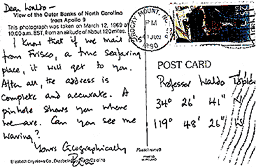 Dear Waldo-
View of the Outer Banks of North Carolina
from Apollo 9
This photograph was taken on March 12, 1969 at
10:00a.m. EST, from an altitude of about 120 miles.
I know that if we mail this
from Frisco, a true seafaring
place, it will get to you.
After all, the address is
complete and accurate. A
pinhole shows you where
we are. Can you see me
waving?
Yours Geographically
ROCKY MOUNT
PM
1990
POST CARD
Professor Waldo Tobler
34° 26' 41" N
119° 48' 26" W